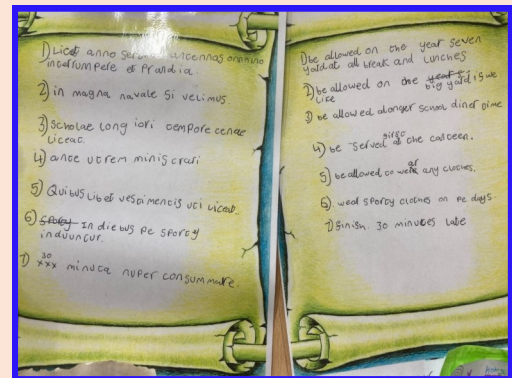 1) Licet anno omnino
interrumpere et Prandia.
2) in magna navale si velimus.
3) Scholae long iori tempore cenae
liceat.
4) ante utrem minis crati
5) Quibus libet vestimentis uti liceat.
6) In diebus Pe sporty
induuntur.
7) 30 xxx minuta nuper consummare.
1) be allowed on the year seven
yard at all break and lunches
2) be allowed on the big yard is we
like
3) be allowed a longer school diner time
4) be served first at the canteen.
5) be allowed to wear any clothes.
6) wear sporty clothes on Pe days.
7) finish 30 minutes late